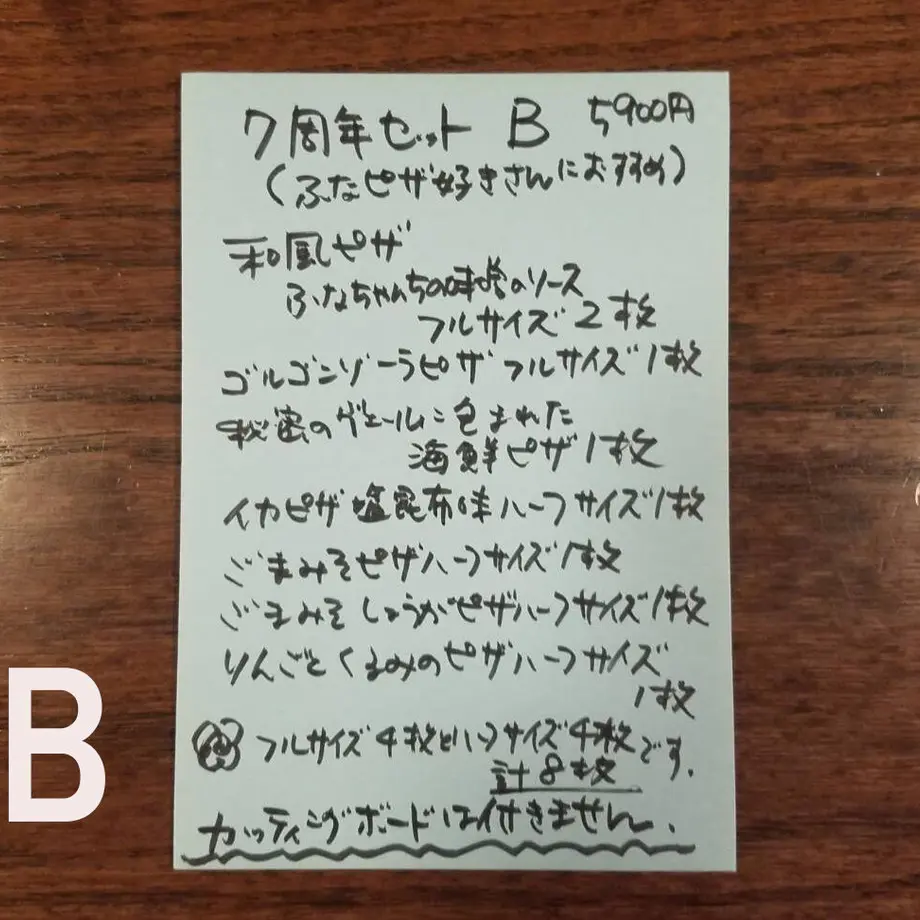 7周年セット B 5900円
(ふなピザ好きさんにおすすめ)
和風ピザ
ふなちゃんちの味噌のソース
フルサイズ2枚
ゴルゴンゾーラピザ フルサイズ1枚
秘密のヴェールに包まれた
海鮮ピザ1枚
イカピザ 塩昆布味ハーフサイズ1枚
ごまみそピザハーフサイズ1枚
ごまみそしょうがピザハーフサイズ1枚
りんごとくるみのピザハーフサイズ
1枚
フルサイズ4枚とハーフサイズ4枚です.
計8枚
カッティングボードは付きません.
B